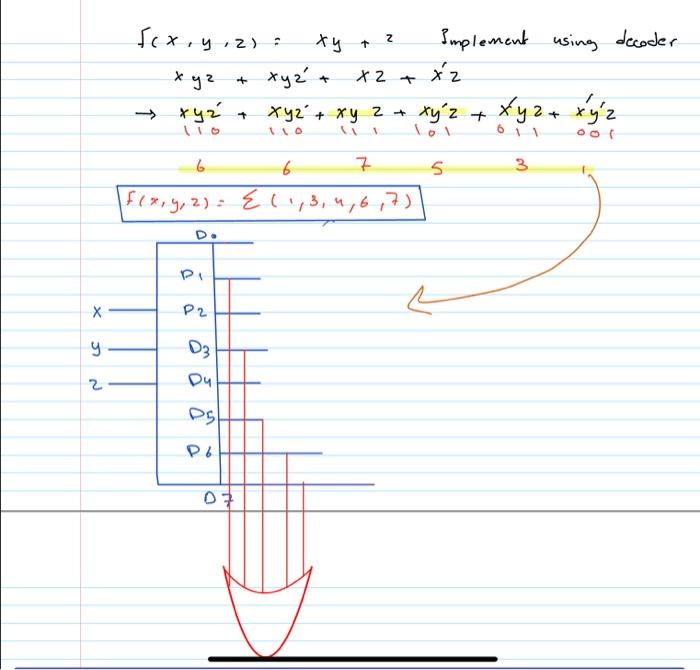 f(x,y,z) = xy + z Implement using decoder
xyz + xyz' + xz + x'z
→ xyz' + xyz' + xyz + xy'z + x'yz + x'y'z
110 110 111 101 011 001
6 6 7 5 3 1
f(x,y,z) = Σ(1,3,4,6,7)
D0
D1
x D2
y D3
z D4
D5
D6
D7